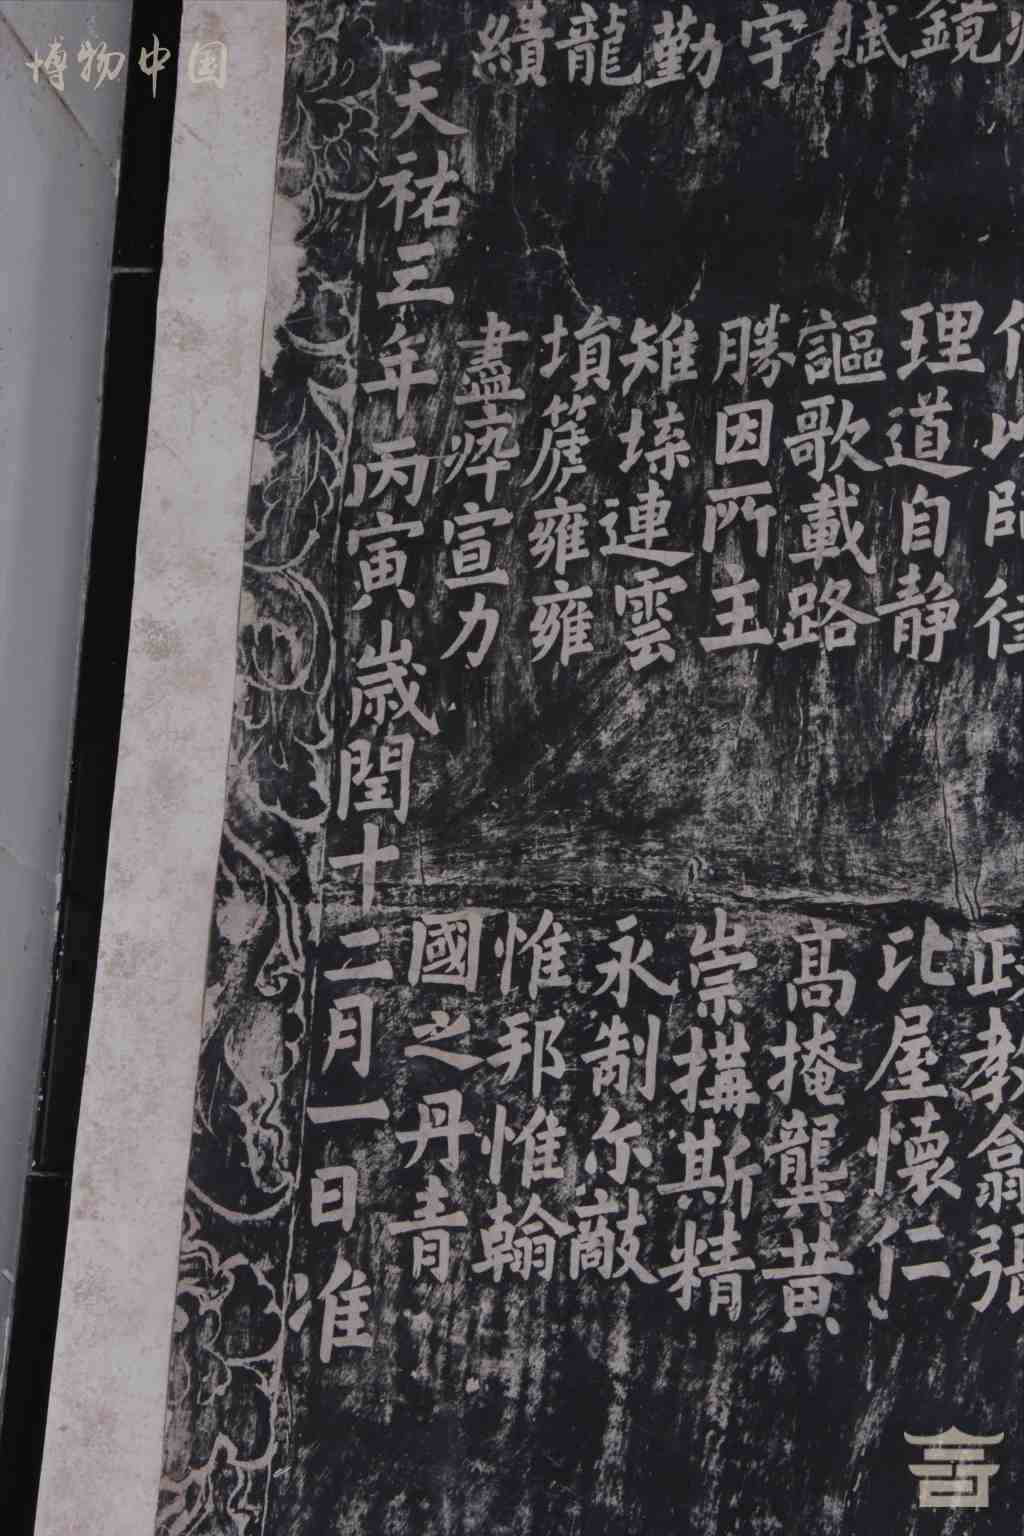 博物中国
政教翕張
鏡 理道自静 比屋懷仁
賦 謳歌載路 髙掩龔黄
宇 勝因所主 崇搆斯精
勤 雉堞連雲 永制尔敵
龍 塤篪雍雍 惟邦惟翰
績 盡瘁宣力 國之丹青
天祐三年丙寅歲閏十二月一日准